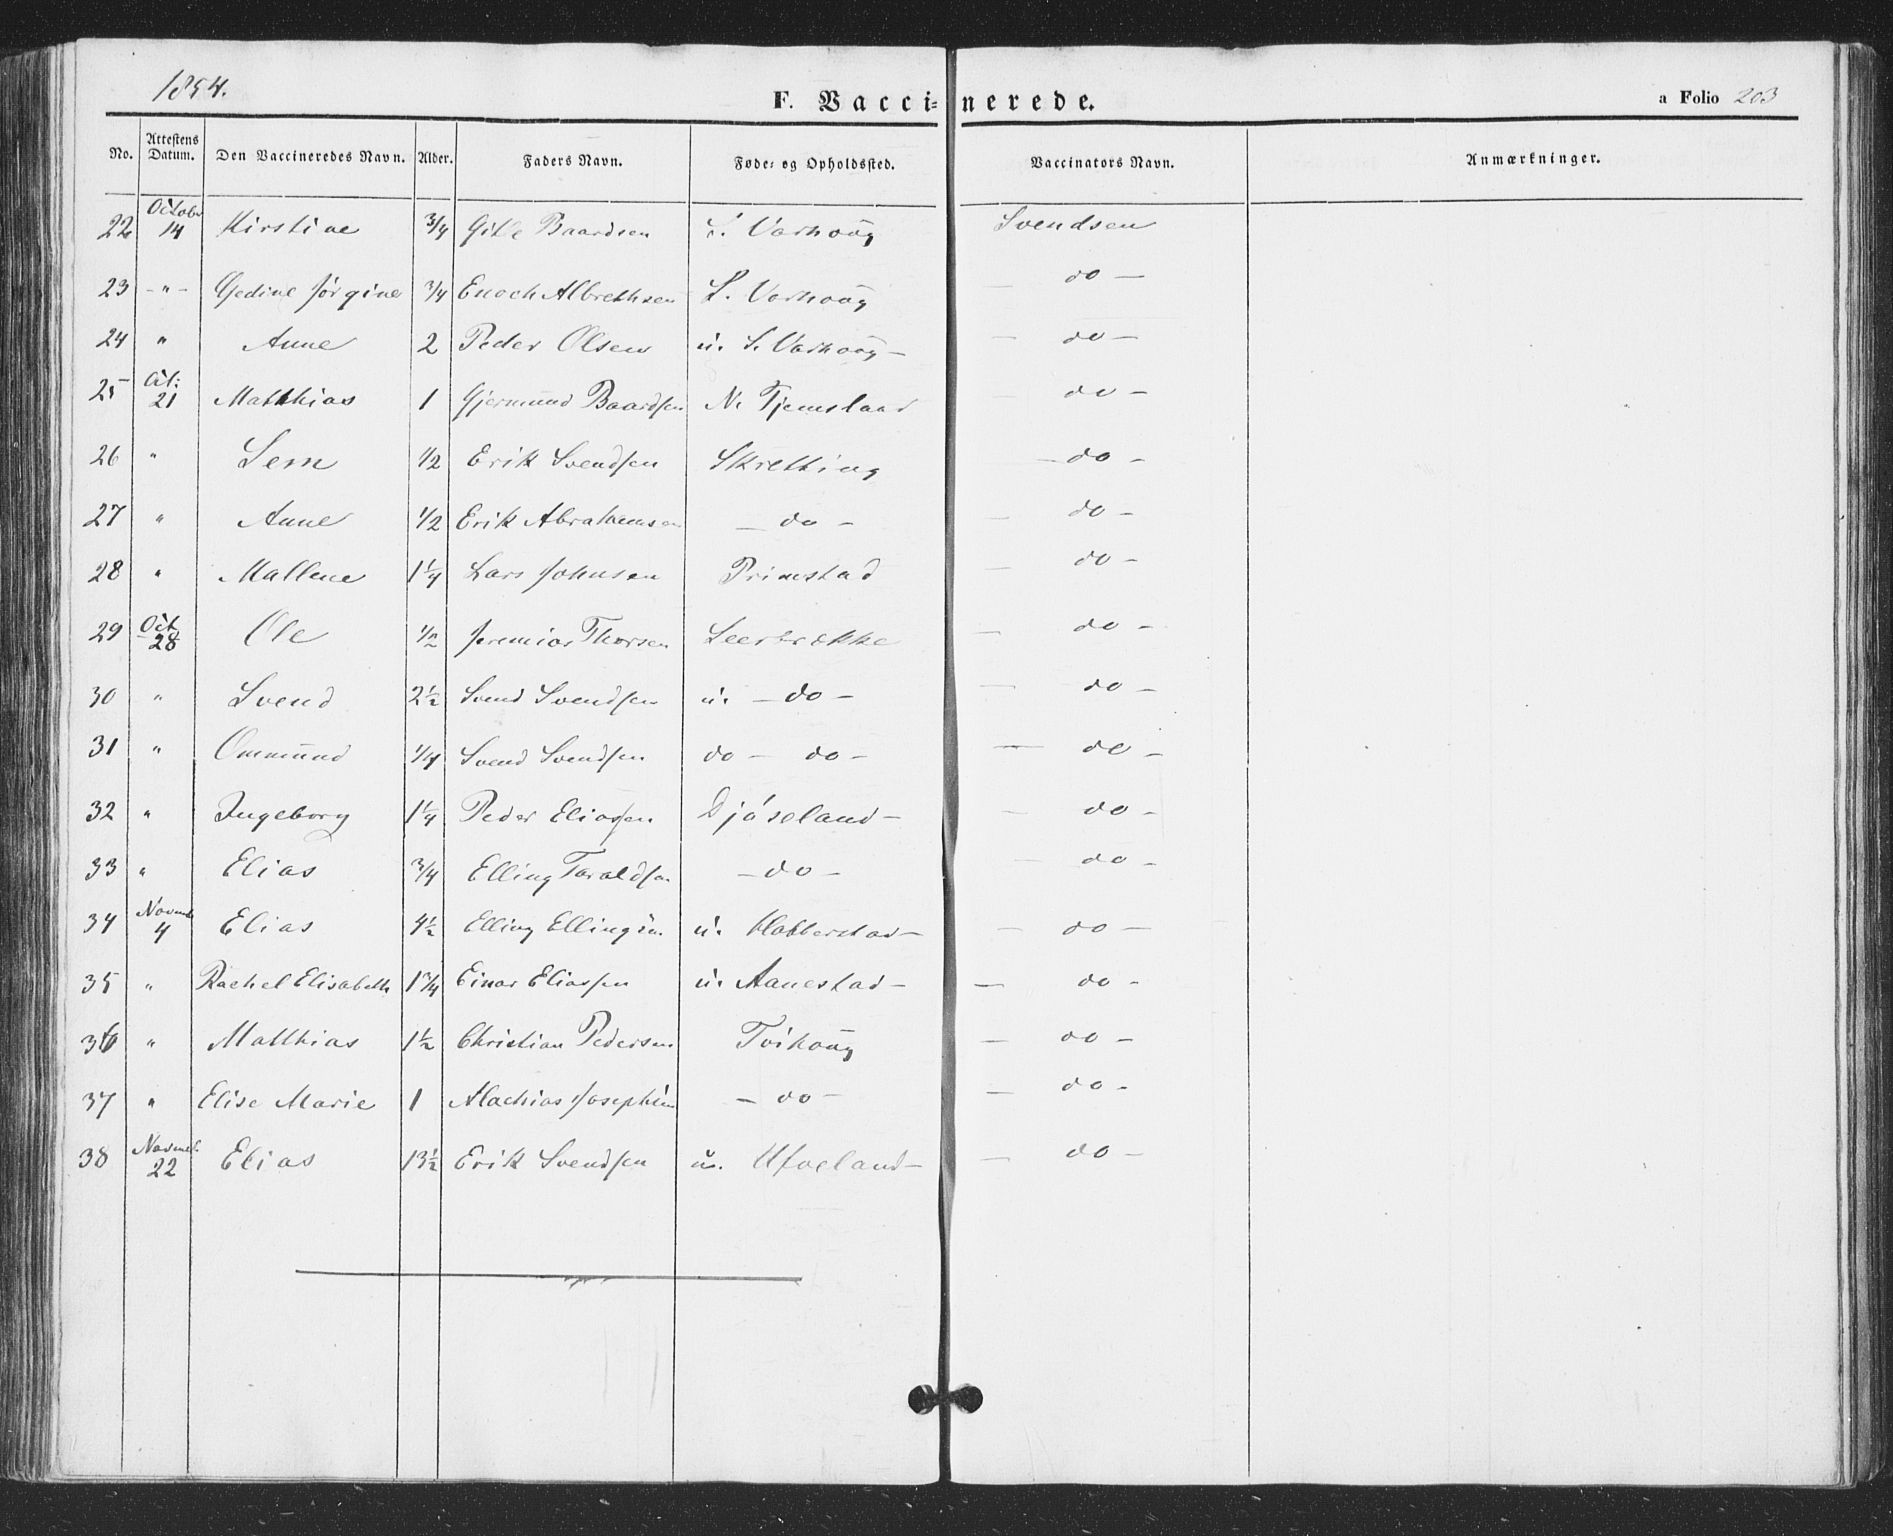 1854.
F. Vaccinerede.
a Folio 203
No. Attestens Datum. Den Vaccineredes Navn. Alder. Faders Navn. Føde- og Opholdssted. Vaccinators Navn. Anmærkninger.
22 Octobr 14 Kirstine 3/4 Gitle Baardsen S. Varhoug Svendsen
23 -"- Gedine Jørgine 3/4 Enoch Albrethsen S. Varhoug — do —
24 " Anne 2 Peder Olsen u. S. Varhoug — — do —
25 Oct: 21 Matthias 1 Gjermund Baardsen N. Tjemsland — do —
26 " Sem 1/2 Erik Svendsen Skretting — do —
27 " Anne 1/2 Erik Abrahamsen — do — — do —
28 " Mallene 1 1/4 Lars Johnsen Primstad — do —
29 Oct 28 Ole 1/2 Jeremias Thorsen Leerbrække — do —
30 " Svend 2 1/2 Svend Svendsen u. — do — — do —
31 " Ommund 1/4 Svend Svendsen do — do — — do —
32 " Ingeborg 1 1/4 Peder Eliassen Djøseland — — do —
33 " Elias 3/4 Elling Taraldsen — do — — do —
34 Novemb 4 Elias 4 1/2 Elling Ellingsen u. Hobberstad — — do —
35 " Rachel Elisabeth 1 3/4 Einar Eliassen u. Aanestad — — do —
36 " Matthias 1 1/2 Christian Pedersen Tvihoug — do —
37 " Elise Marie 1 Machias Josephsen — do — — do —
38 Novmb. 22 Elias 13 1/2 Erik Svendsen u. Ufveland — — do —